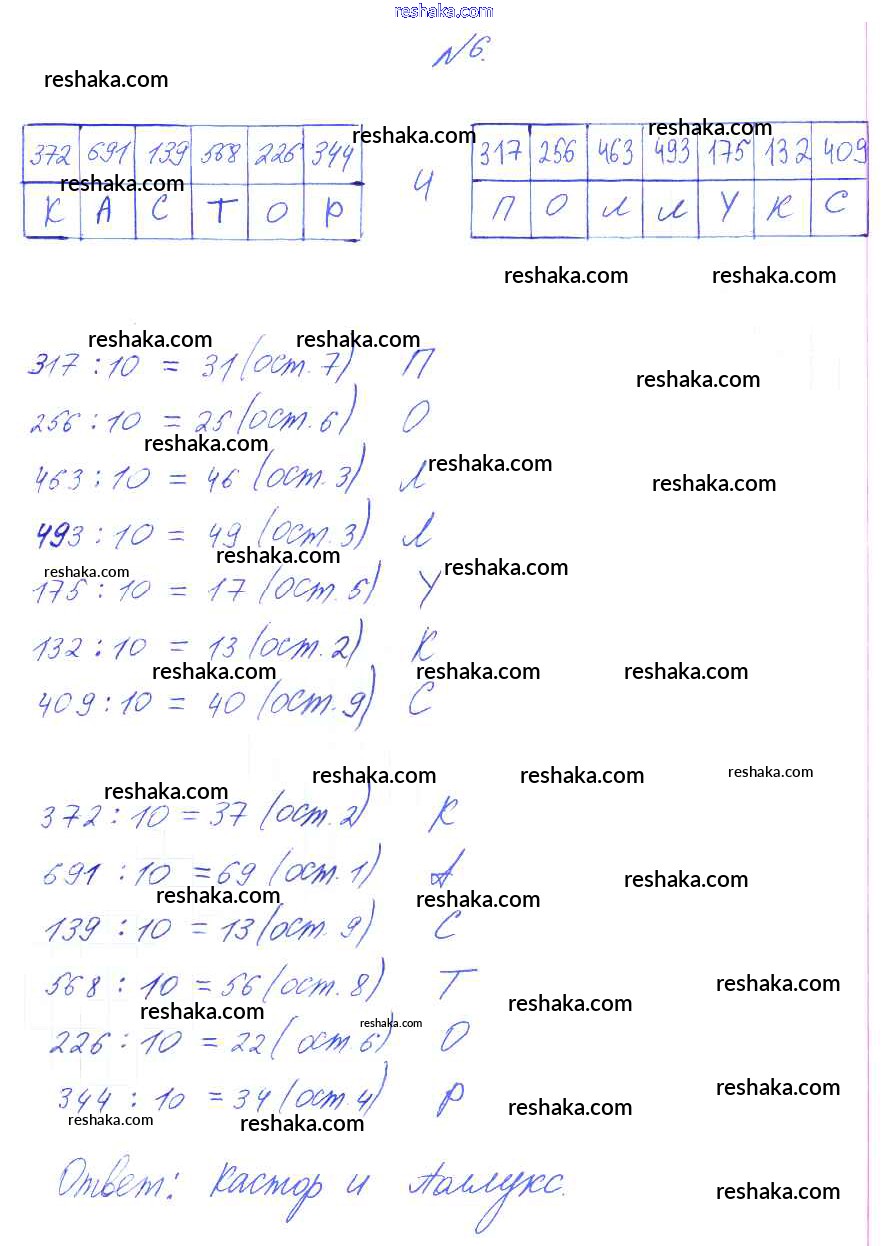 reshaka.com
№6.
reshaka.com
reshaka.com reshaka.com
372 691 139 568 226 344 И 317 256 463 493 175 132 409
reshaka.com
К А С Т О Р П О Л Л У К С
reshaka.com reshaka.com
reshaka.com reshaka.com
317 : 10 = 31 (ост. 7) П
reshaka.com
256 : 10 = 25 (ост. 6) О
reshaka.com reshaka.com
463 : 10 = 46 (ост. 3) Л
reshaka.com
493 : 10 = 49 (ост. 3) Л
reshaka.com
reshaka.com reshaka.com
175 : 10 = 17 (ост. 5) У
132 : 10 = 13 (ост. 2) К
reshaka.com reshaka.com reshaka.com
409 : 10 = 40 (ост. 9) С
reshaka.com reshaka.com reshaka.com
reshaka.com
372 : 10 = 37 (ост. 2) К
691 : 10 = 69 (ост. 1) А
reshaka.com
reshaka.com reshaka.com
139 : 10 = 13 (ост. 9) С
568 : 10 = 56 (ост. 8) Т
reshaka.com
reshaka.com reshaka.com
reshaka.com
226 : 10 = 22 (ост 6) О
344 : 10 = 34 (ост. 4) Р
reshaka.com
reshaka.com reshaka.com
reshaka.com
Ответ: Кастор и Поллукс.
reshaka.com